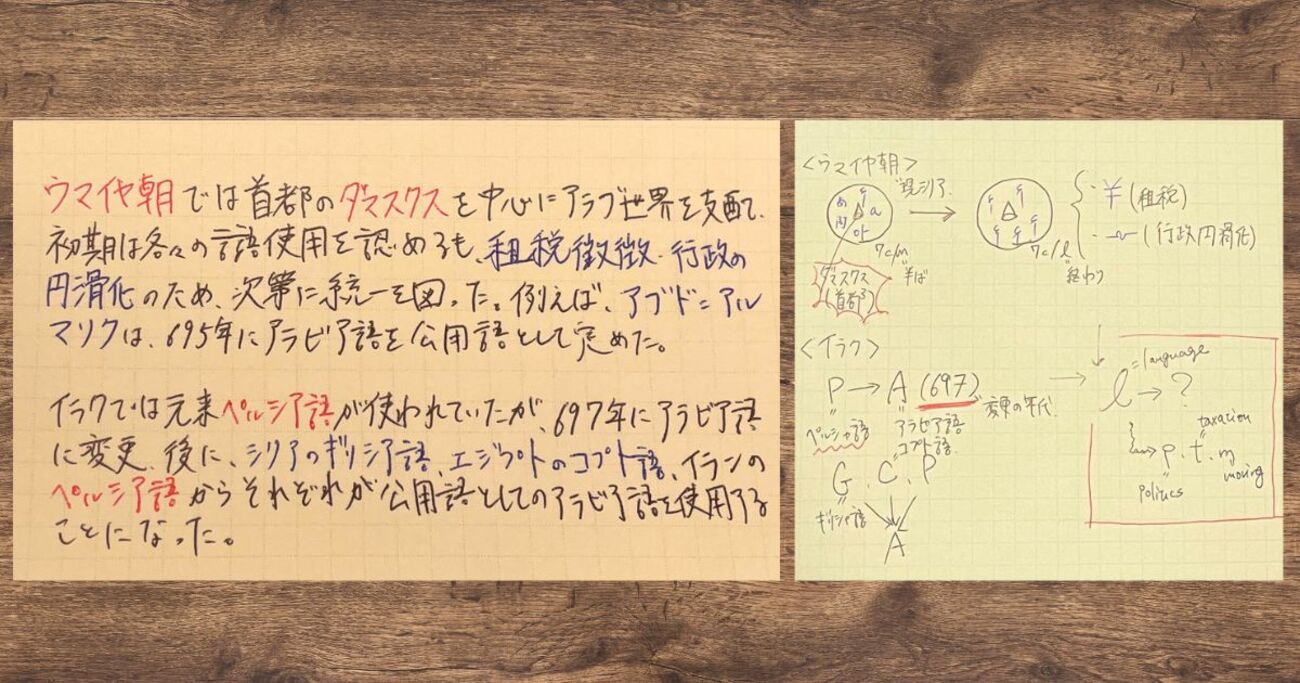 ウマイヤ朝では首都のダマスクスを中心にアラブ世界を支配で、
初期は各々の言語使用を認めるも、租税徴徴・行政の
円滑化のため、次第に統一を図った。例えば、アブド＝アル
マリクは、695年にアラビア語を公用語として定めた。
イラクでは元来ペルシア語が使われていたが、697年にアラビア語
に変更、後に、シリアのギリシア語、エジプトのコプト語、イランの
ペルシア語からそれぞれが公用語としてのアラビア語を使用する
ことになった。
<ウマイヤ朝>
現シリア
あ a
아
7c/m
半ば
ダマスクス
(首都)
7c/l
終わり
・¥(租税)
(行政円滑化)
<イラク>
P→A(697)
変更の年代
ペルシャ語
アラビア語
コプト語
G.C.P
ギリシャ語
A
=language
l→?
taxation
p.t.m
moving
politics